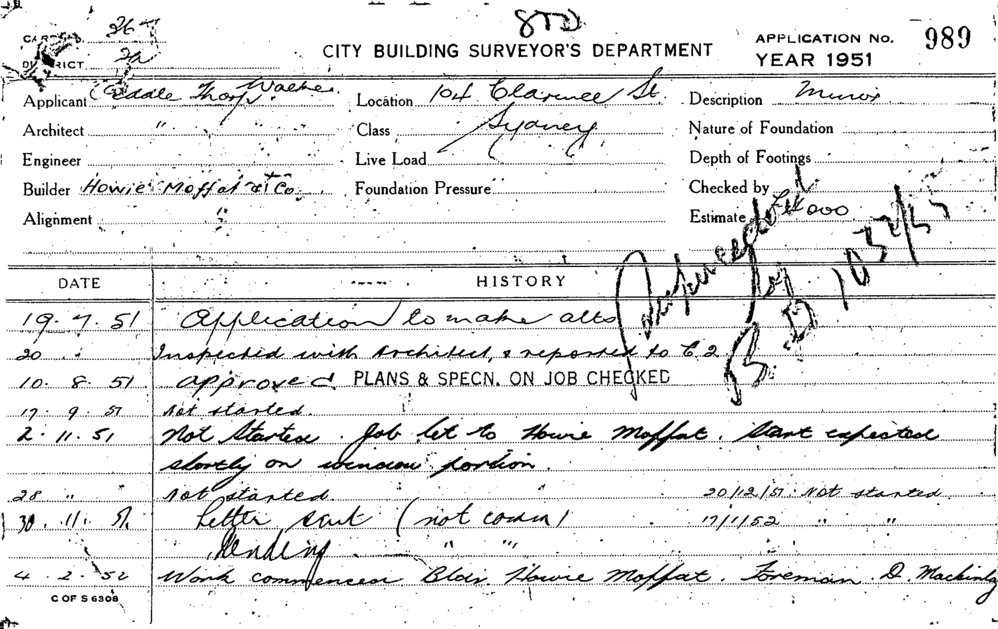 CITY BUILDING SURVEYOR'S DEPARTMENT
APPLICATION No. 989
YEAR 1951
CARD No. 26
DISTRICT 2A
Applicant Thorp Walker
Location 104 Clarence St.
Sydney
Description Minor
Architect "
Class
Nature of Foundation
Engineer
Live Load
Depth of Footings
Builder Howie Moffat & Co
Foundation Pressure
Checked by
Alignment
Estimate 000
by
DATE HISTORY
19.7.51 Application to make alts
20 " Inspected with Architect, & reported to C.2
10.8.51 approved PLANS & SPECN. ON JOB CHECKED
17.9.51 Not started.
2.11.51 Not Started. Job let to Howie Moffat. Start expected
shortly on window portion.
28 " Not started. 20/12/51 Not started
30.11.51 Letter sent (not comm) 17/1/52 " "
Pending " "
4.2.52 Work commenced Bldr. Howie Moffat. Foreman D. Mackinlay
C OF S 6308